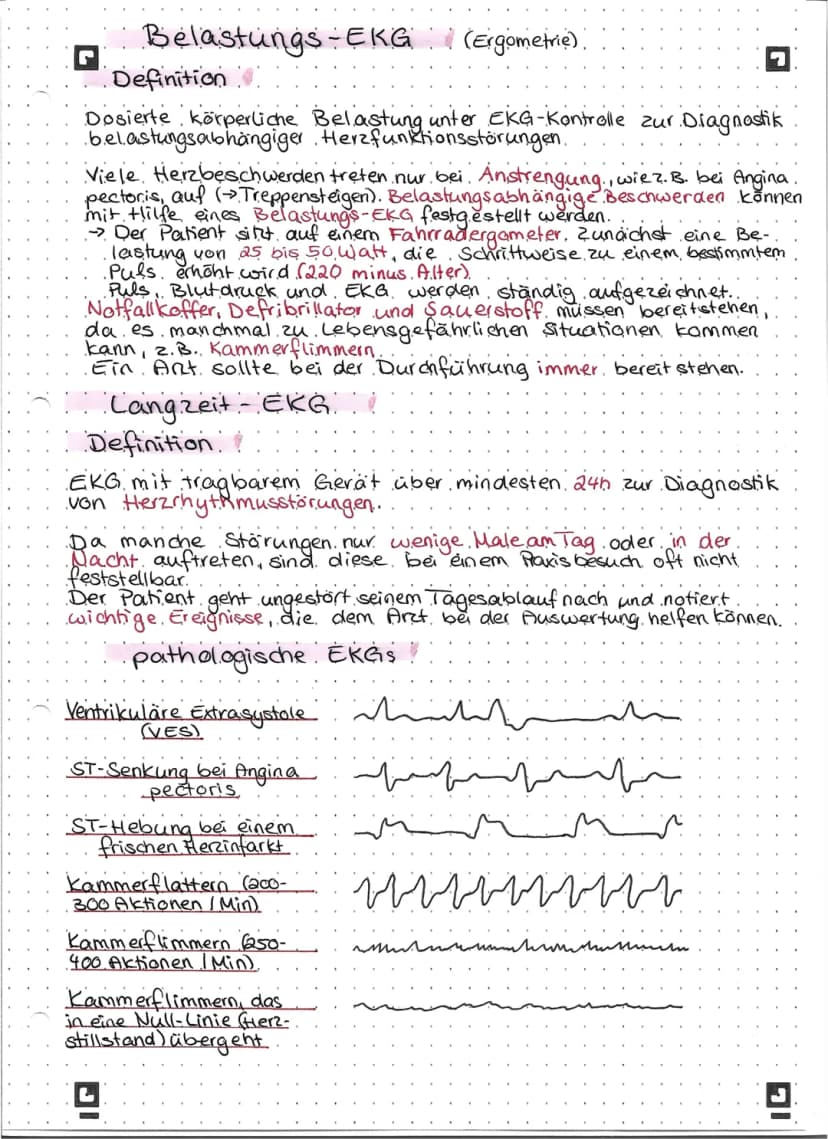 Belastungs-EKG ! (Ergometrie)
Definition !
Dosierte körperliche Belastung unter EKG-Kontrolle zur Diagnostik
belastungsabhängiger Herzfunktionsstörungen.
Viele Herzbeschwerden treten nur bei Anstrengung, wie z.B. bei Angina
pectoris, auf (→Treppensteigen). Belastungsabhängige Beschwerden können
mit Hilfe eines Belastungs-EKG festgestellt werden.
→ Der Patient sitzt auf einem Fahrradergometer, zunächst eine Be-
lastung von 25 bis 50 Watt, die schrittweise zu einem bestimmtem
Puls erhöht wird (220 minus Alter).
Puls, Blutdruck und EKG werden ständig aufgezeichnet.
Notfallkoffer, Defribrillator und Sauerstoff müssen bereitstehen,
da es manchmal zu Lebensgefährlichen Situationen kommen
kann, z.B. Kammerflimmern.
Ein Arzt sollte bei der Durchführung immer bereit stehen.
Langzeit-EKG !
Definition !
EKG mit tragbarem Gerät über mindesten 24h zur Diagnostik
von Herzrhythmusstörungen.
Da manche Störungen nur wenige Male am Tag oder in der
Nacht auftreten, sind diese bei einem Praxisbesuch oft nicht
feststellbar.
Der Patient geht ungestört seinem Tagesablauf nach und notiert
wichtige Ereignisse, die dem Arzt bei der Auswertung helfen können.
pathologische EKGs !
Ventrikuläre Extrasystole
(VES)
ST-Senkung bei Angina
pectoris
ST-Hebung bei einem
frischen Herzinfarkt
Kammerflattern (200-
300 Aktionen / Min)
Kammerflimmern (250-
400 Aktionen / Min)
Kammerflimmern, das
in eine Null-Linie (Herz-
stillstand) übergeht